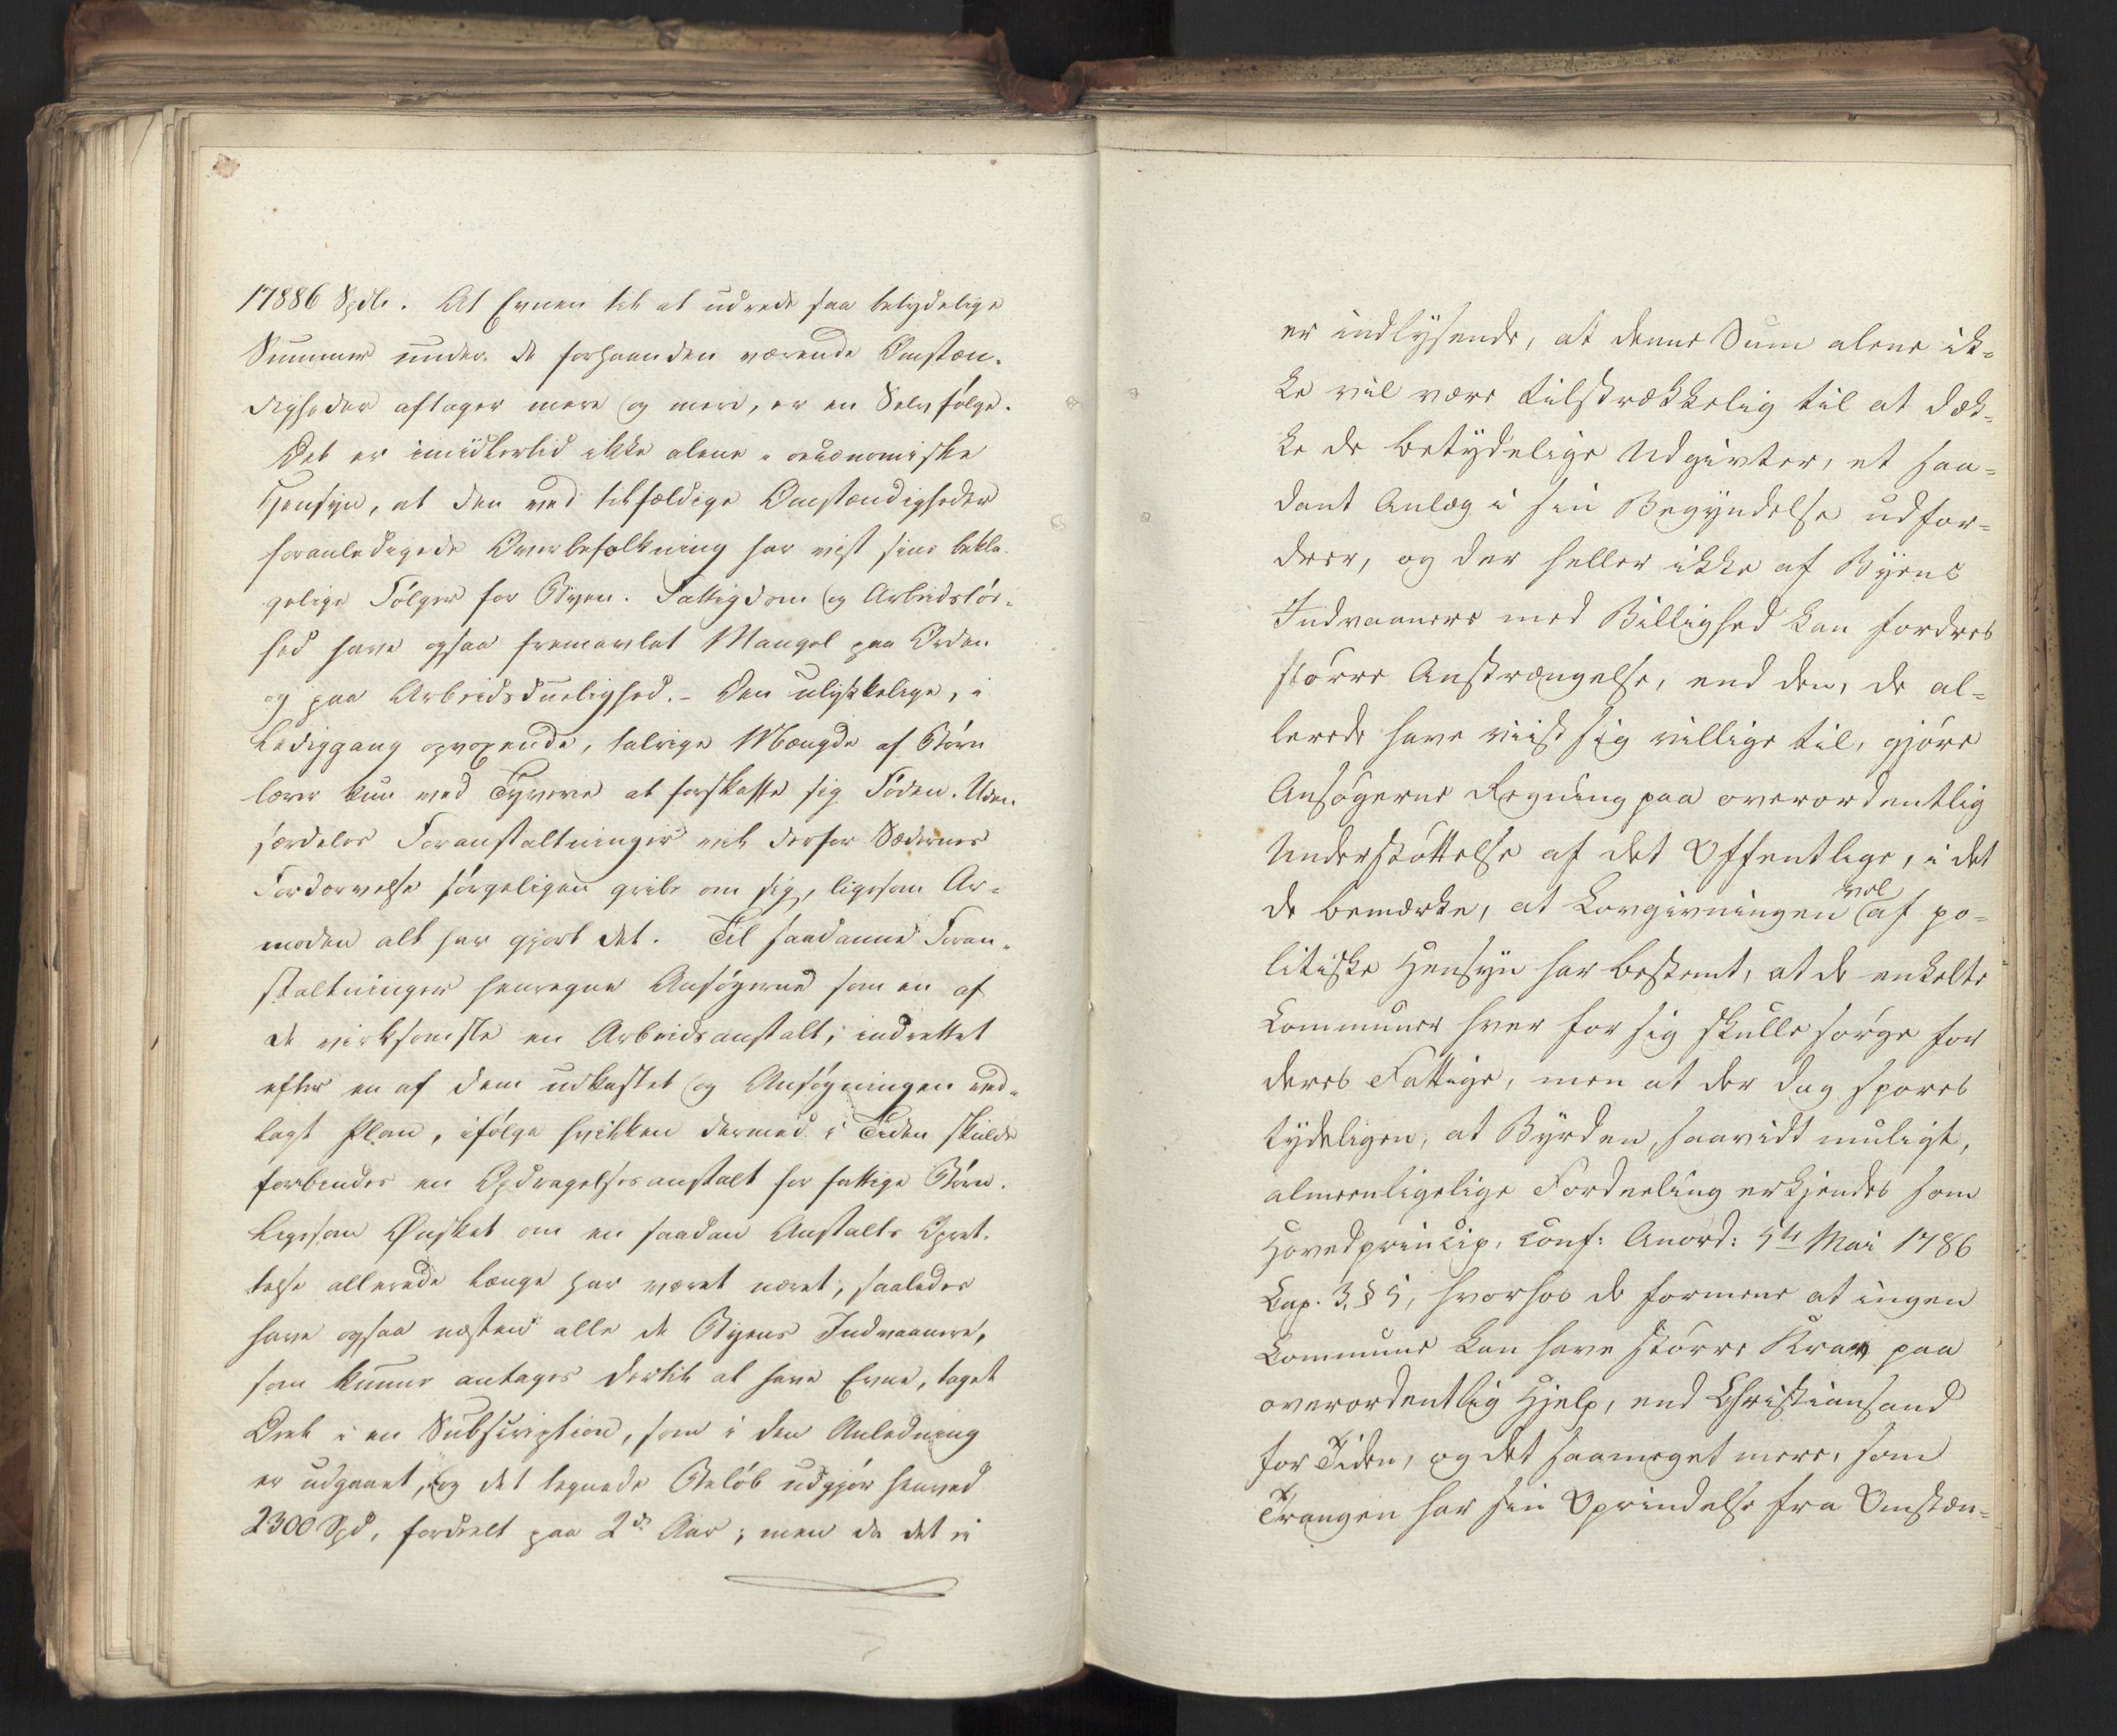 17886 Spdlr. At Evnen til at udrede saa betydelige
Summer under de forhaanden værende Omstæn-
digheder aftager mere og mere, er en Selvfølge.
Det er imidlertid ikke alene i oeconomiske
Hensyn, at den ved tilfældige Omstændigheder
foranledigede Overbefolkning har vist sine bekla-
gelige Følger for Byen. Fattigdom og Arbeidsløs-
hed have ogsaa fremavlet Mangel paa Orden
og paa Arbeidsduelighed. - Den ulykkelige, i
Lediggang opvoxende, talrige Mængde af Børn
lærer kun ved Tyverie at forskaffe sig Føden. Uden
særdeles Foranstaltninger vil derfor Sædernes
Fordærvelse sørgeligen gribe om sig, ligesom Ar-
moden alt har gjort det. Til saadanne Foran-
staltninger henregne Ansøgerne som en af
de virksomste en Arbeidsanstalt, indrettet
efter en af dem udkastet og Ansøgningen ved-
lagt Plan, ifølge hvilken dermed i Tiden skulde
forbindes en Opdragelsesanstalt for fattige Børn.
Ligesom Ønsket om en saadan Anstalts Opret-
telse allerede længe har været næret, saaledes
have ogsaa næsten alle de Byens Indvaanere,
som kunne antages dertil at have Evne, taget
Deel i en Subscription, som i den Anledning
er udgaaet, og det tegnede Beløb udgjør henved
2300 Spd, fordeelt paa 2de Aar; men da det er
er indlysende, at denne Sum alene ik-
ke vil være tilstrækkelig til at dæk-
ke de betydelige Udgivter, et saa-
dant Anlæg i sin Begyndelse udfor-
drer, og der heller ikke af Byens
Indvaanere med Billighed kan fordres
større Anstrængelse, end den, de al-
lerede have viist sig villige til, gjøre
Ansøgerne Regning paa overordentlig
Understøttelse af det Offentlige, i det
de bemærke, at Lovgivningen vel af po-
litiske Hensyn har bestemt, at de enkelte
Communer hver for sig skulle sørge for
deres Fattige, men at der dog spores
tydeligen, at Byrden, saavidt muligt,
almeenligelige Fordeeling erkjendes som
Hovedprincip, conf: Anord: 5te Mai 1786
Cap. 3, § 5, hvorhos de formene at ingen
Commune kan have større Krav paa
overordentlig Hjelp, end Christiansand
for Tiden, og det saameget mere, som
Trangen har sin Oprindelse fra Omstæn-